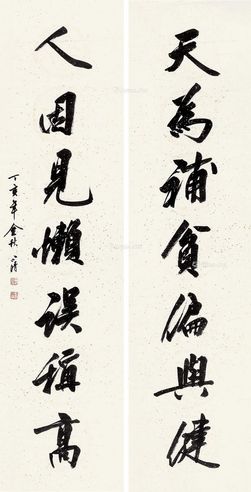 天為補貧偏與健
人因見懶誤稱高
丁亥年金秋